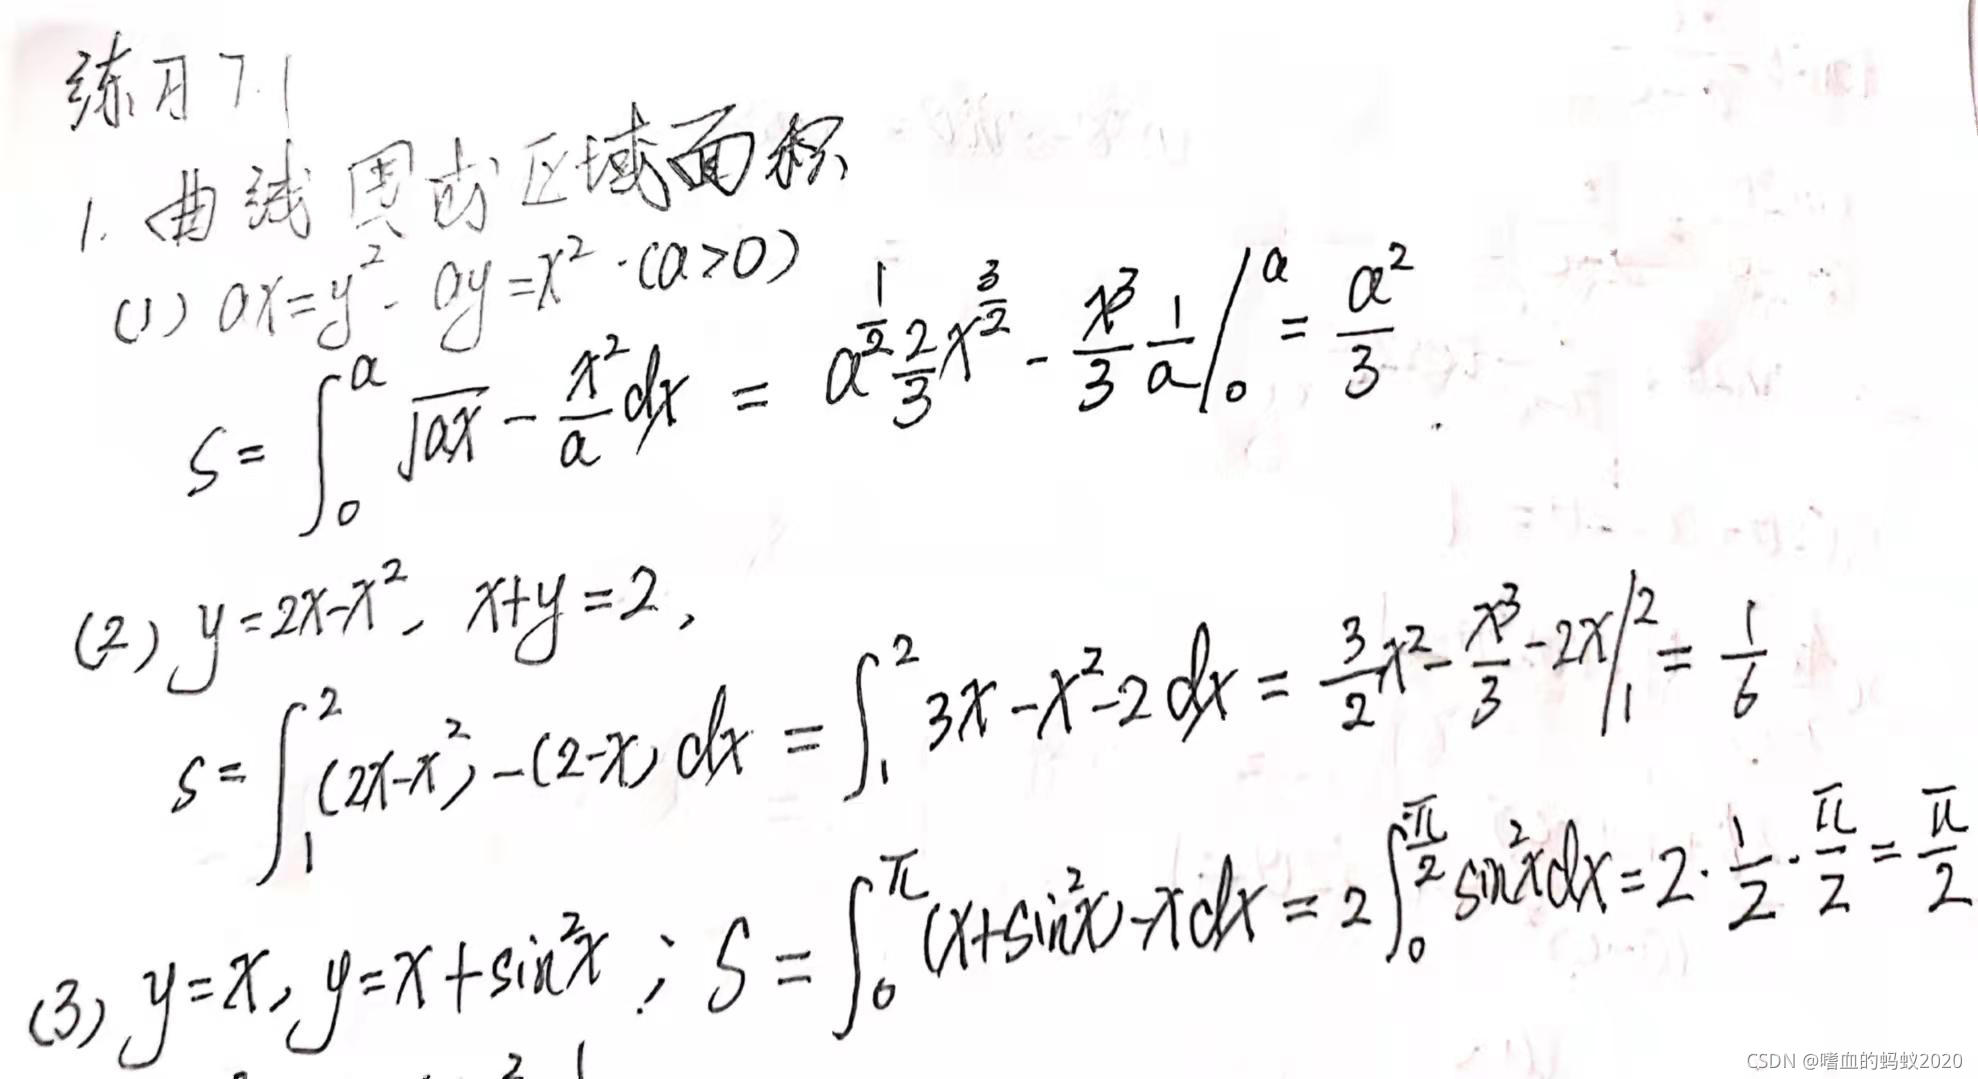 练习7.1
1. 曲线围成区域面积
(1) ax=y², ay=x². (a>0)
S=∫₀ᵃ √(ax) - x²/a dx = a^(1/2) 2/3 x^(3/2) - x³/3 1/a |₀ᵃ = a²/3
(2) y=2x-x², x+y=2,
S=∫₁² (2x-x²)-(2-x) dx = ∫₁² 3x-x²-2 dx = 3/2 x² - x³/3 - 2x |₁² = 1/6
(3) y=x, y=x+sin²x; S=∫₀^π (x+sin²x)-x dx = 2∫₀^(π/2) sin²x dx = 2·1/2·π/2 = π/2
CSDN @嗜血的蚂蚁2020